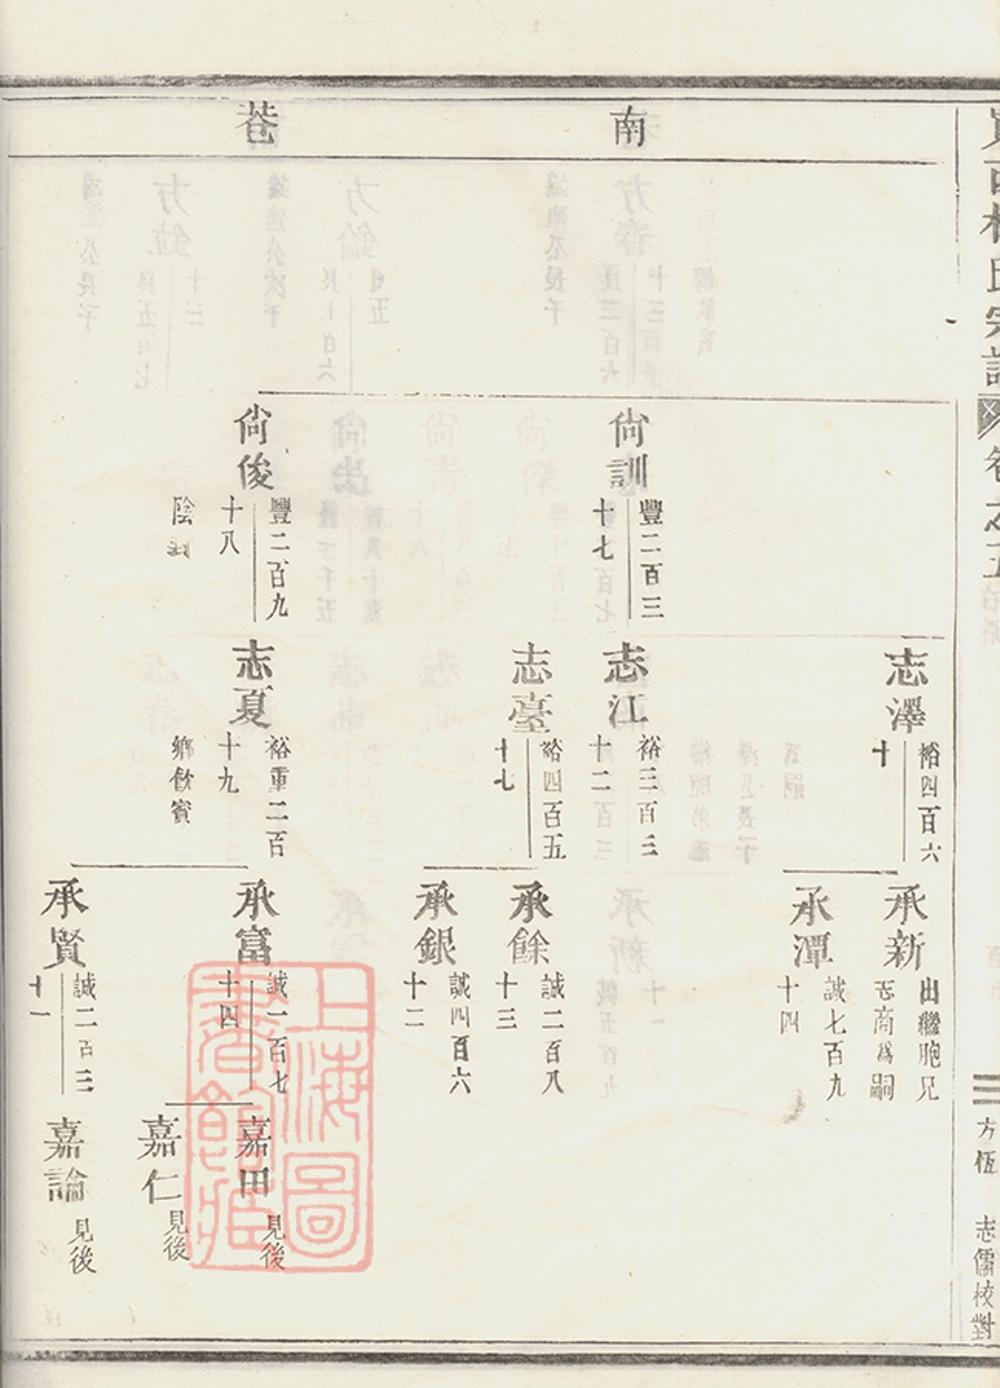 氏宗譜 卷之五
方恆 志儒校對
南巷
尙訓
豐二百三
十七
尙俊
豐二百九
十八
陰
志澤
裕四百六
十
志江
裕三百三
十二
志臺
裕四百五
十七
志夏
裕重二百
十九
鄉飲賓
承新
出繼胞兄
志商為嗣
承潭
誠七百九
十四
承餘
誠二百八
十三
承銀
誠四百六
十二
承富
誠一百七
十四
承賢
誠二百三
十一
嘉田
見後
嘉仁
見後
嘉論
見後
上海圖
書館藏